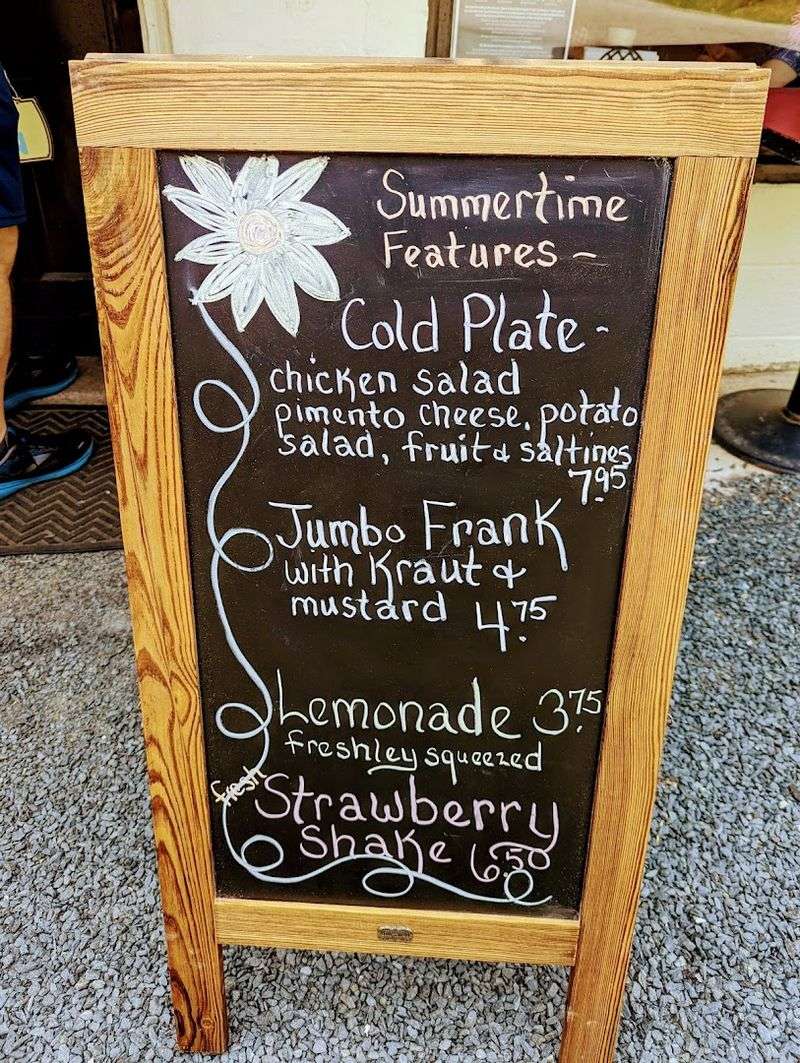 Summertime
Features -
Cold Plate -
chicken salad
pimento cheese, potato
salad, fruit & saltines
7.95
Jumbo Frank
with Kraut &
mustard 4.75
Lemonade 3.75
freshley squeezed
fresh
Strawberry
Shake 6.50